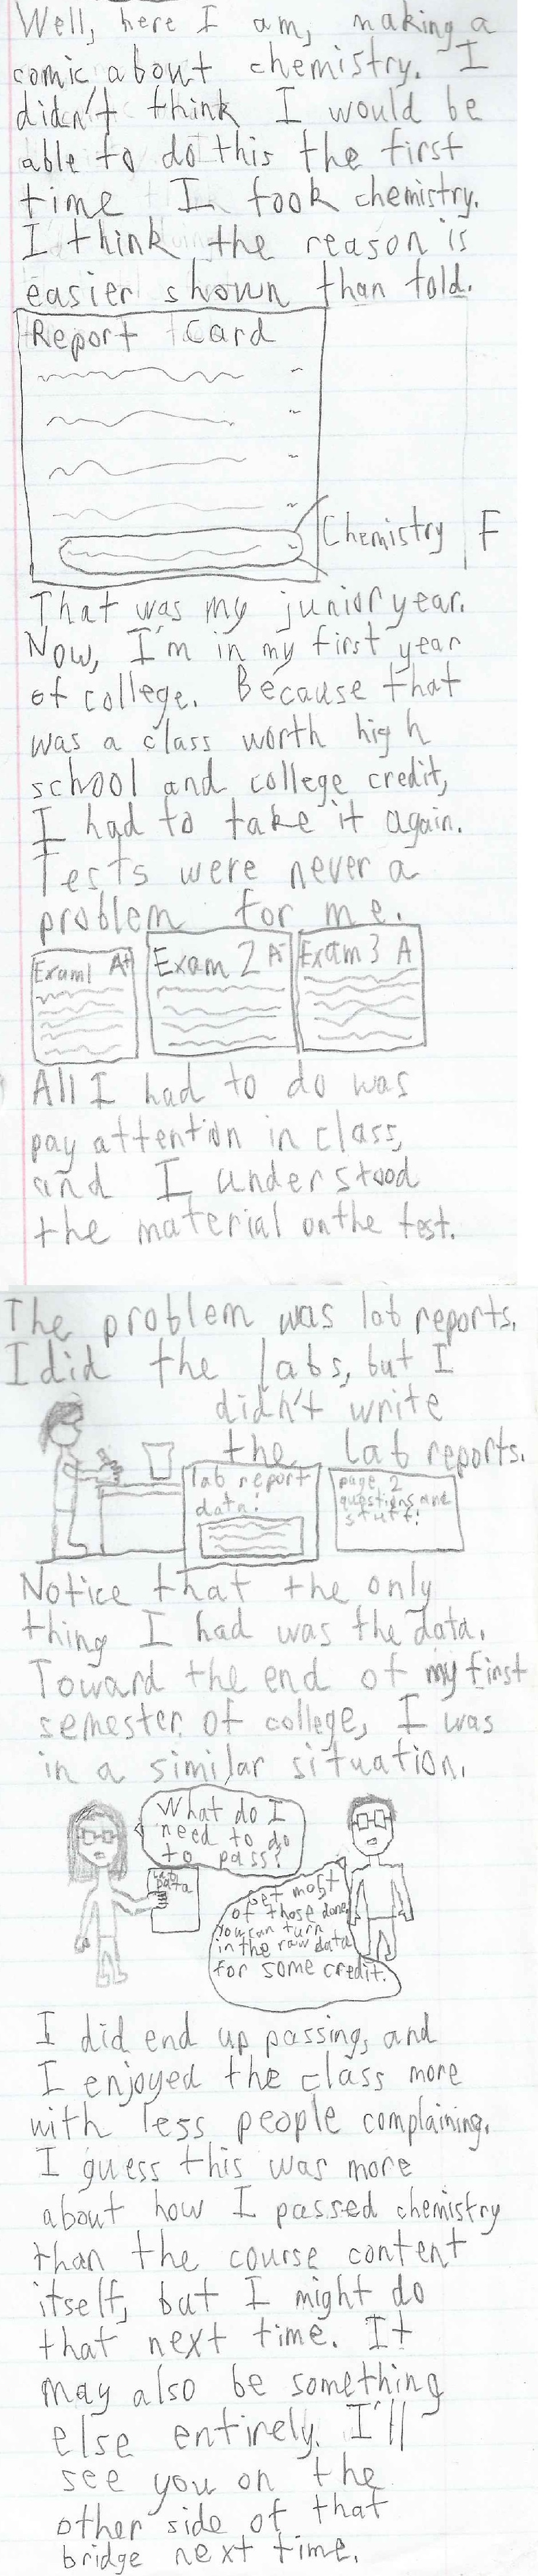 Well, here I am, making a
comic about chemistry. I
didn't think I would be
able to do this the first
time I took chemistry.
I think the reason is
easier shown than told.
Report Card
Chemistry F
That was my junior year.
Now, I'm in my first year
of college. Because that
was a class worth high
school and college credit,
I had to take it again.
Tests were never a
problem for me.
Exam 1 A+
Exam 2 A-
Exam 3 A
All I had to do was
pay attention in class,
and I understood
the material on the test.
The problem was lab reports.
I did the labs, but I
didn't write
the lab reports.
lab report
data!
page 2
questions and
stuff!
Notice that the only
thing I had was the data.
Toward the end of my first
semester of college, I was
in a similar situation.
What do I
need to do
to pass?
Lab
Data
Get most
of those done.
You can turn
in the raw data
for some credit.
I did end up passing, and
I enjoyed the class more
with less people complaining.
I guess this was more
about how I passed chemistry
than the course content
itself, but I might do
that next time. It
may also be something
else entirely. I'll
see you on the
other side of that
bridge next time.